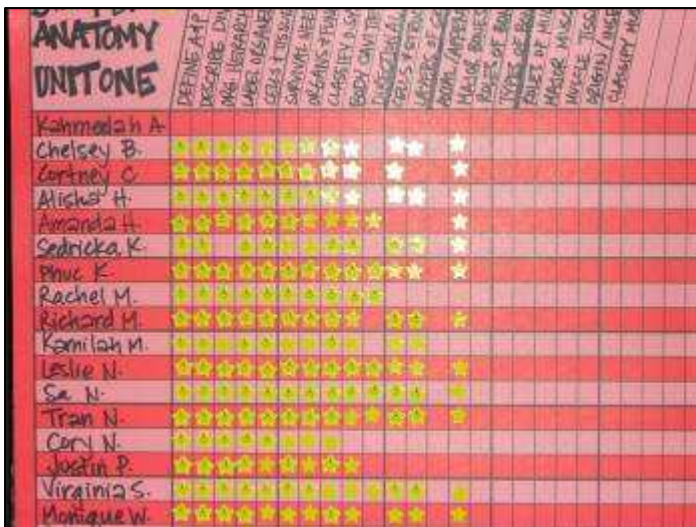 ANATOMY
UNIT ONE
DEFINE A+P
DESCRIBE
LABEL
CELLS + TISSUE
SURVIVAL NEE
ORGANS + FUN
CLASSIFY
BODY CAVITIE
MAJOR BONES
TYPES OF
ROLES OF MU
MAJOR MUSC
MUSCLE TISS
ORIGIN / INSE
CLASSIFY MU
Kahmedah A.
Chelsey B.
Cortney C
Alisha H.
Amanda H.
Sedricka K.
Phuc K
Rachel M.
Richard M.
Kamilah M.
Leslie N.
Sa N.
Tran N.
Cory N.
Justin P.
Virginia S.
Monique W.